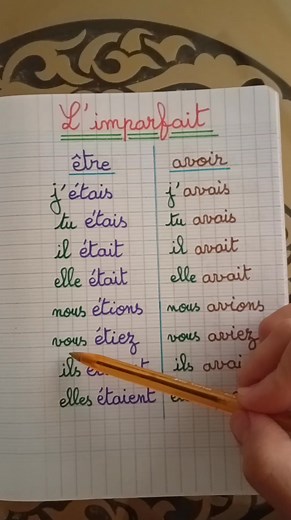 L'imparfait
être avoir
j'étais j'avais
tu étais tu avais
il était il avait
elle était elle avait
nous étions nous avions
vous étiez vous aviez
ils ils
elles étaient